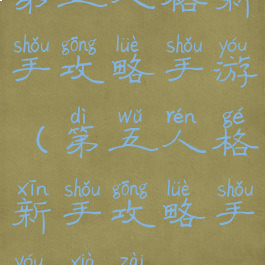 第五人格新
shǒu gōng lüè shǒu yóu
手攻略手游
dì wǔ rén gé
（第五人格
xīn shǒu gōng lüè shǒu
新手攻略手
yóu xià zài